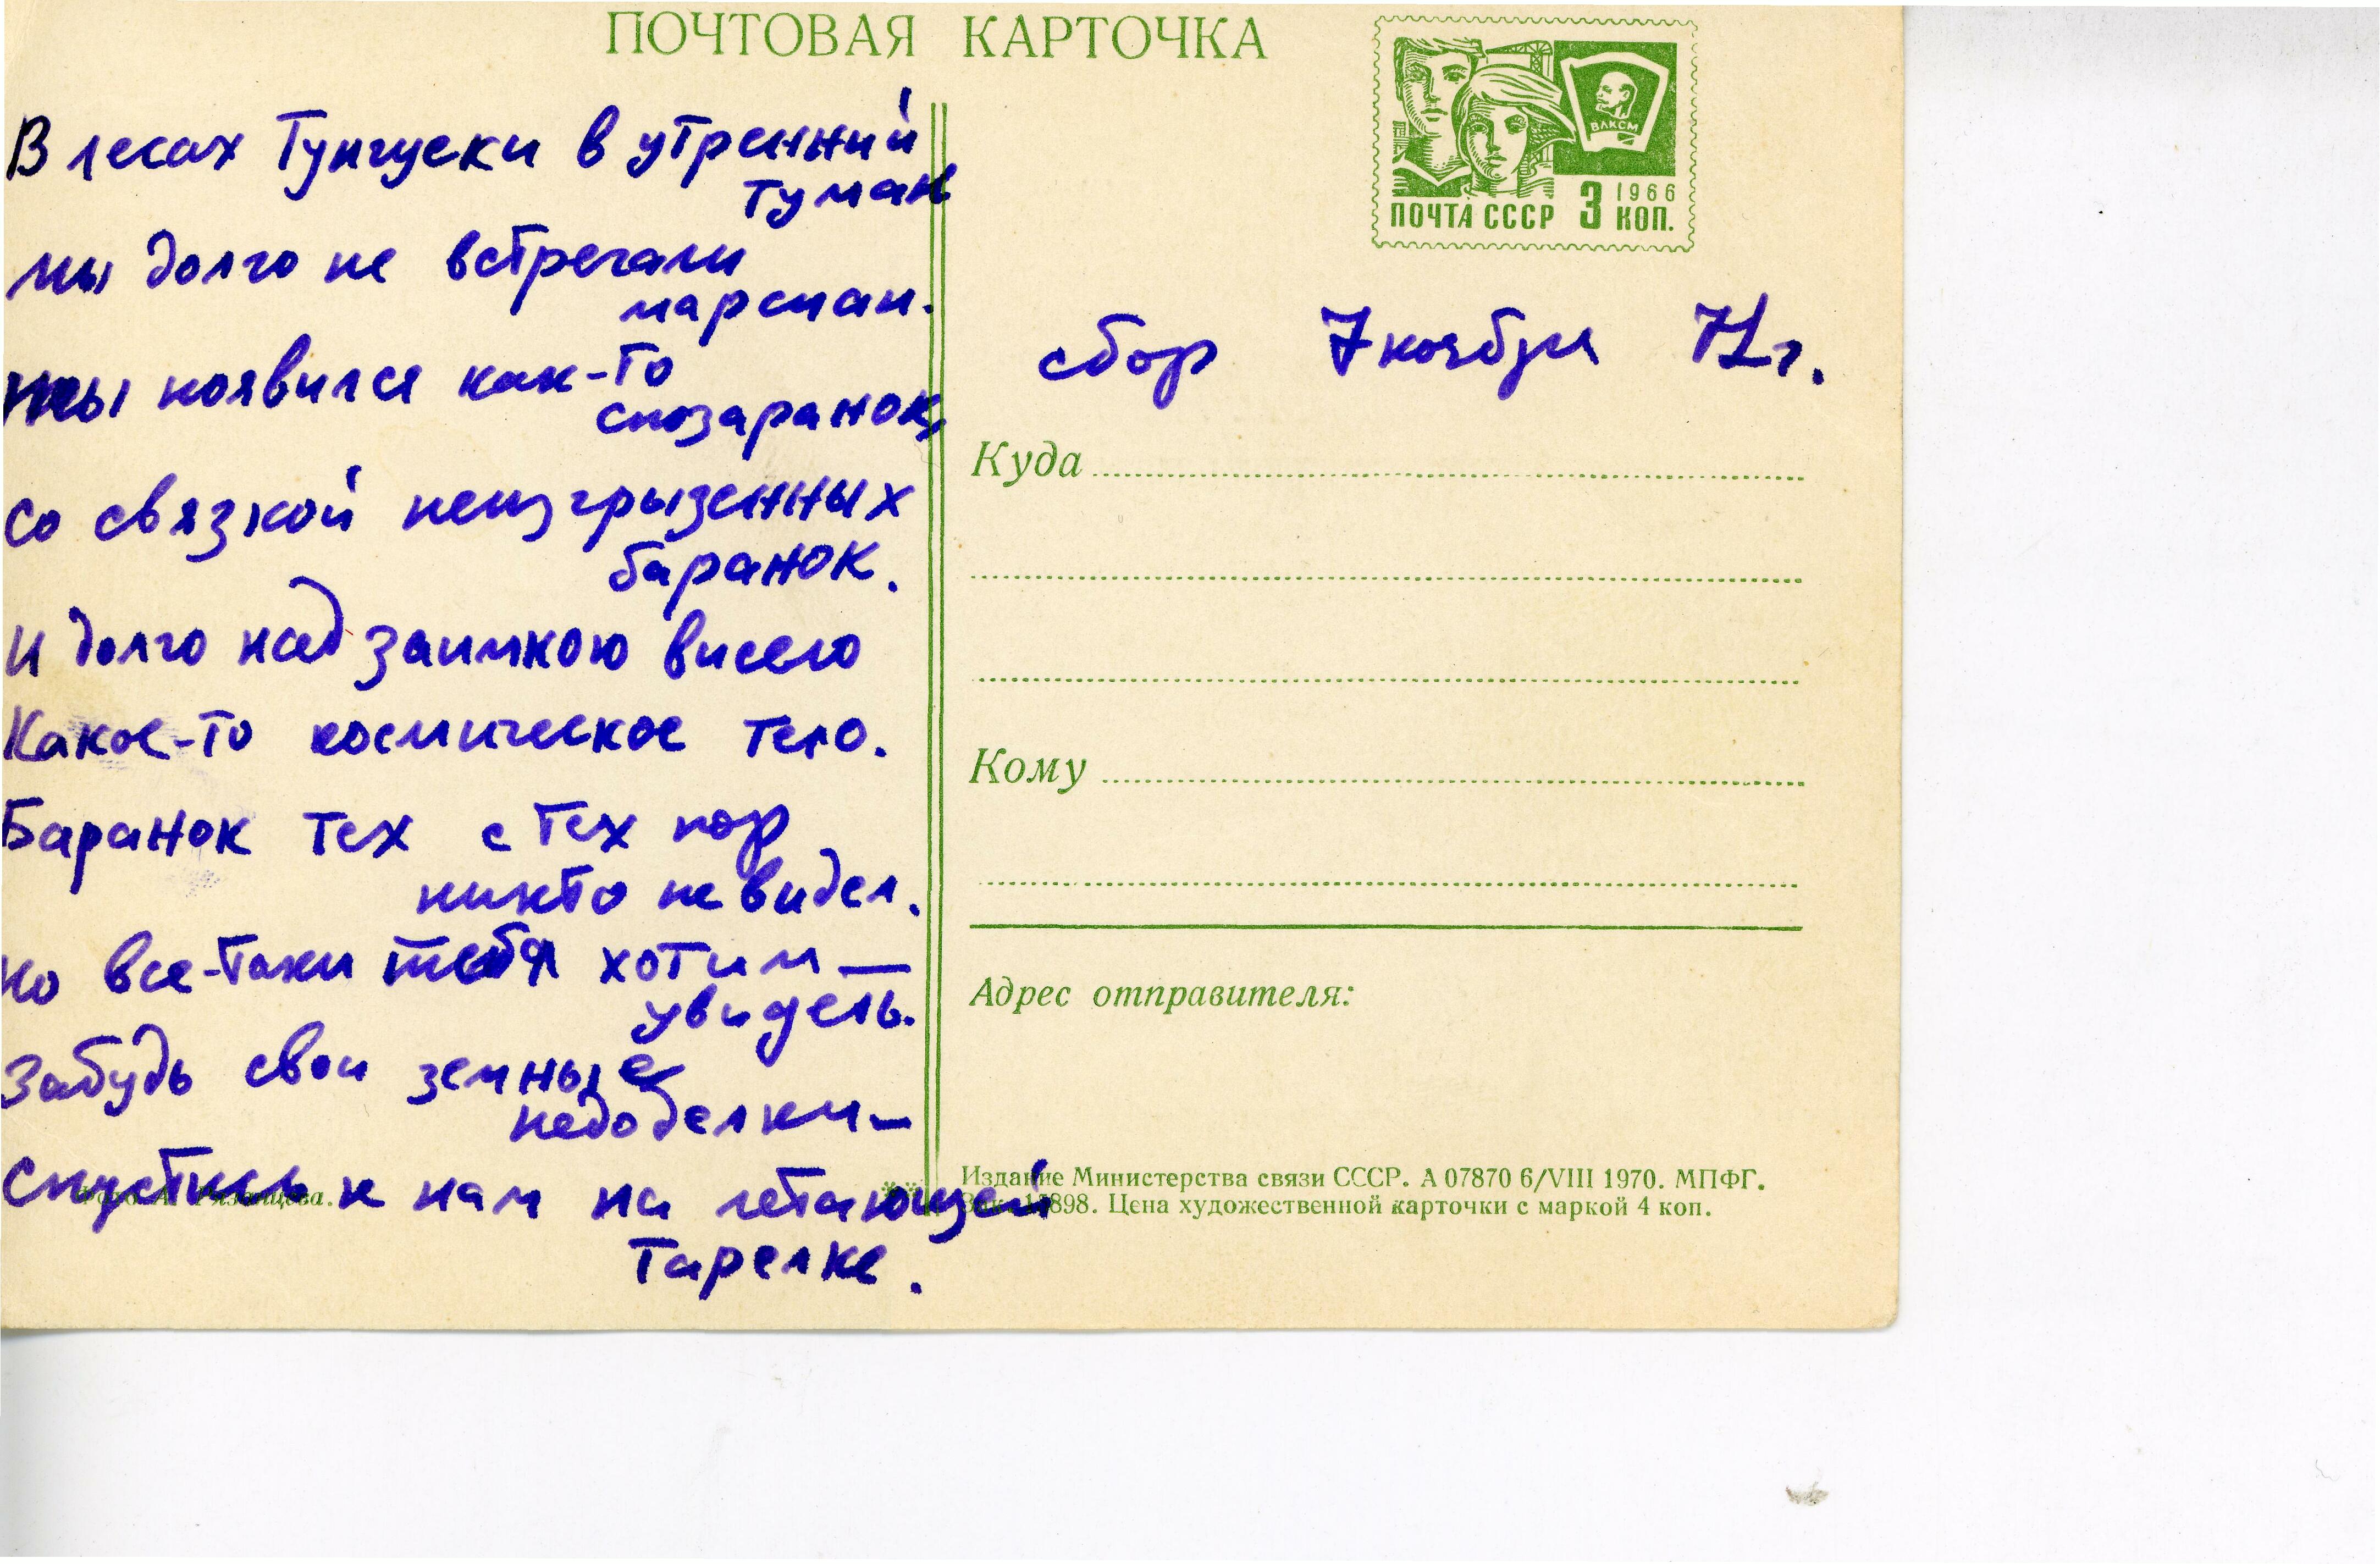 ПОЧТОВАЯ КАРТОЧКА
ВЛКСМ
1966
ПОЧТА СССР 3 КОП.
В лесах Тунгуски в утренний
туман
мы долго не встречали
марсиан.
ты появился как-то
спозаранок,
со связкой неизгрызенных
баранок.
И долго над заимкою висело
Какое-то космическое тело.
Баранок тех с тех пор
никто не видел.
Но все-таки тебя хотим —
увидеть.
Забудь свои земные
недоделки—
Спустись к нам на летающей
Тарелке.
сбор 7 ноября 71г.
Куда
Кому
Адрес отправителя:
Фото А. Рязанцева.
Издание Министерства связи СССР. А 07870 6/VIII 1970. МПФГ.
898. Цена художественной карточки с маркой 4 коп.